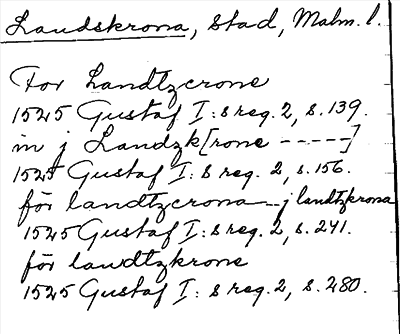 Landskrona, stad, Malm. l.
For Landtzcrone
1525 Gustaf I:s reg. 2, s. 139.
in j Landzk[rone -----]
1525 Gustaf I:s reg. 2, s. 156.
för landtzcrona -- j landtzkrona
1525 Gustaf I:s reg. 2, s. 241.
för landtzkrone
1525 Gustaf I:s reg. 2, s. 280.